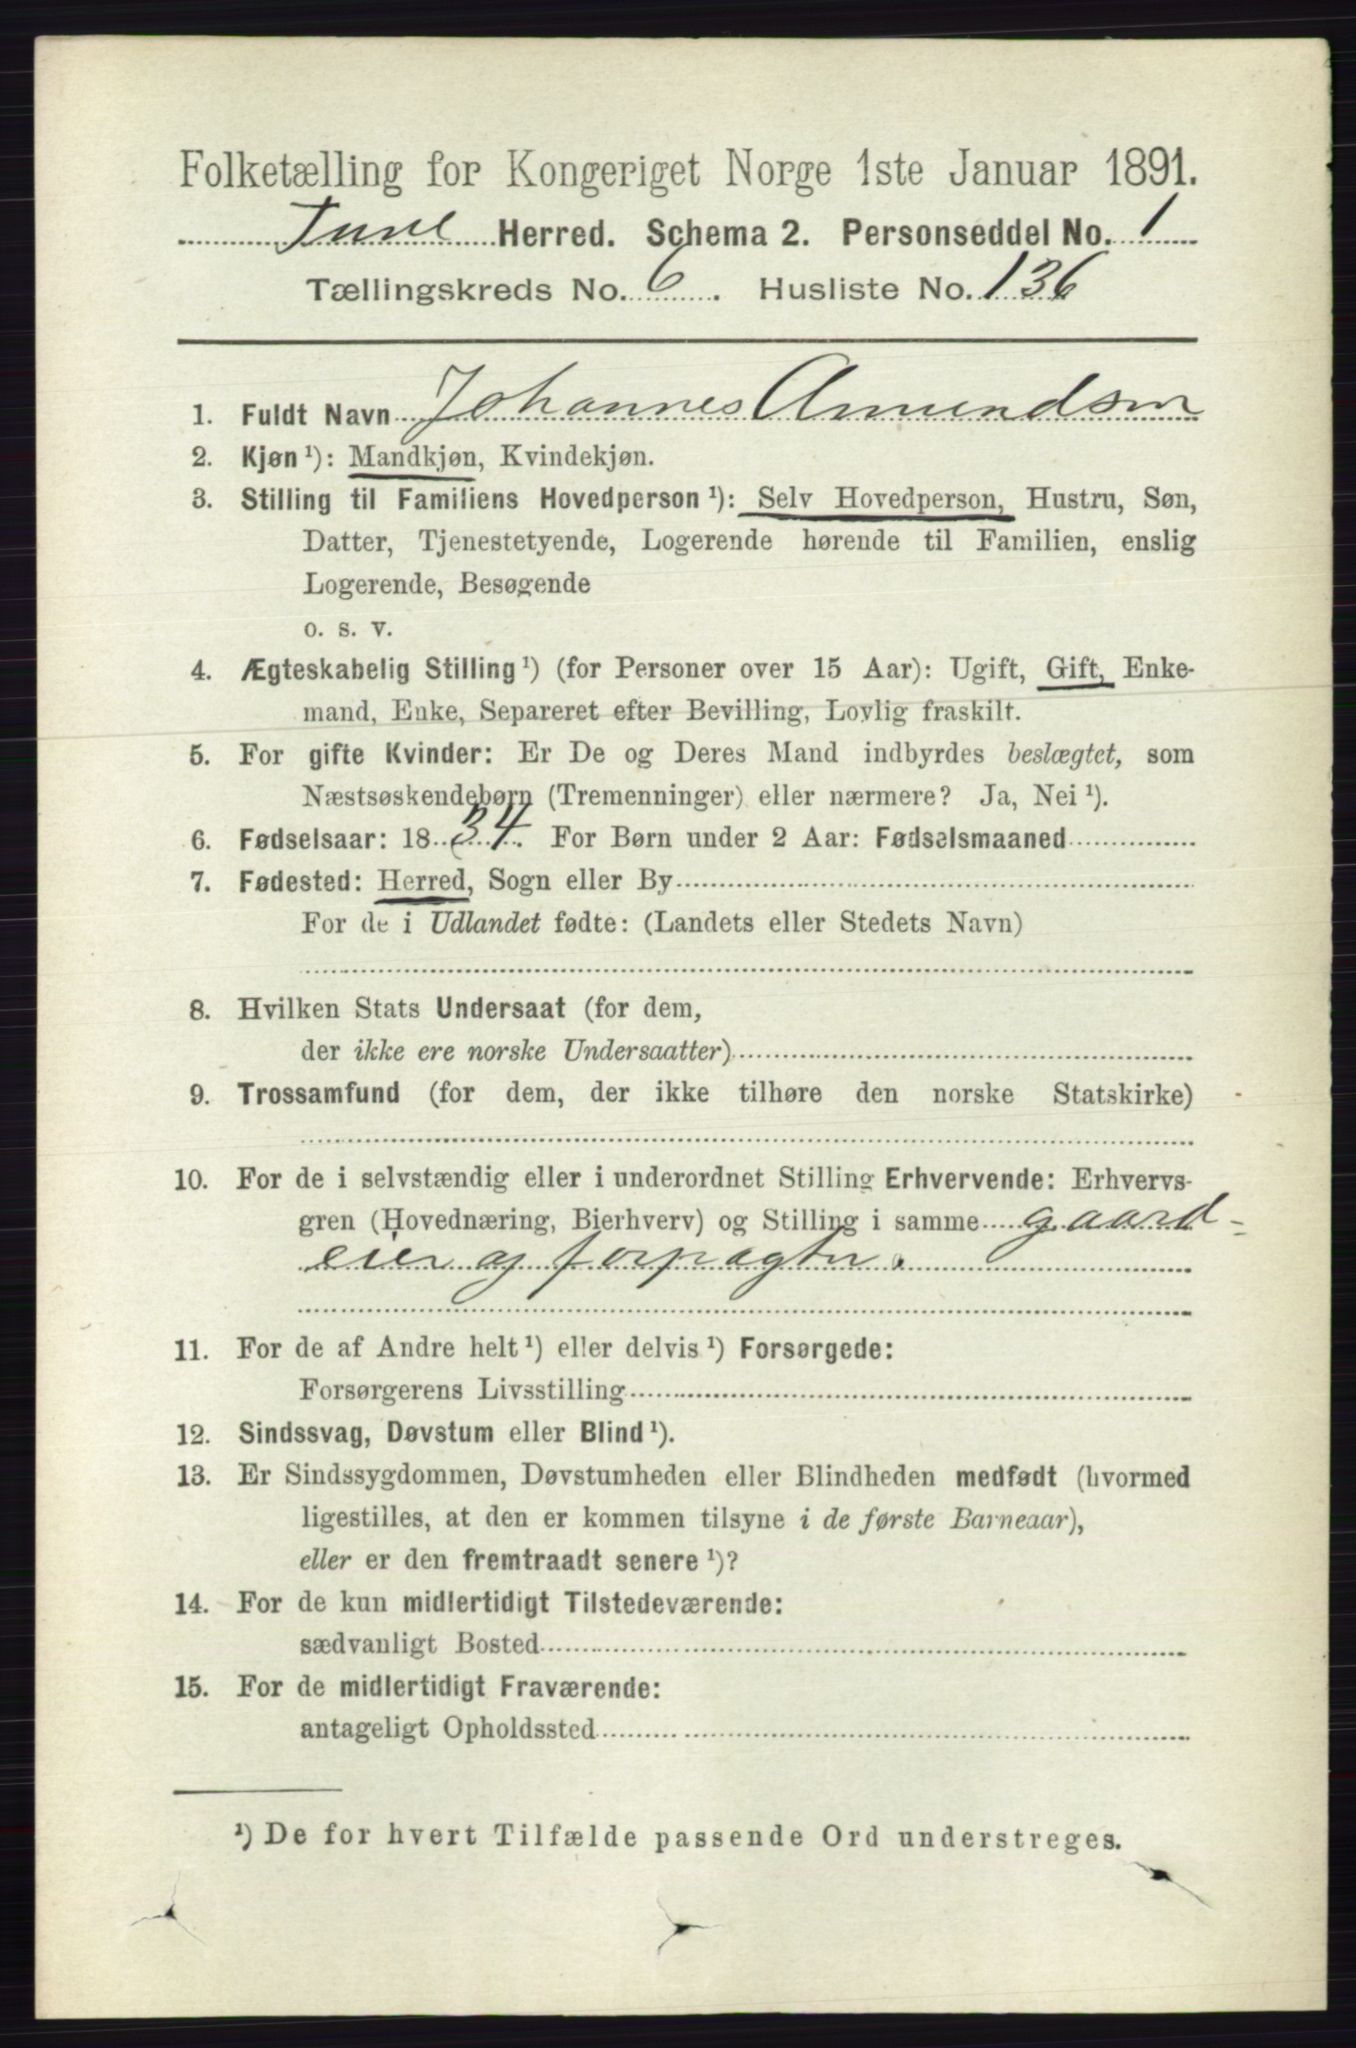 Folketælling for Kongeriget Norge 1ste Januar 1891.
Tune Herred. Schema 2. Personseddel No. 1
Tællingskreds No. 6. Husliste No. 136
1. Fuldt Navn Johannes Amundsen
2. Kjøn ¹): Mandkjøn, Kvindekjøn.
3. Stilling til Familiens Hovedperson ¹): Selv Hovedperson, Hustru, Søn,
Datter, Tjenestetyende, Logerende hørende til Familien, enslig
Logerende, Besøgende
o. s. v.
4. Ægteskabelig Stilling ¹) (for Personer over 15 Aar): Ugift, Gift, Enke-
mand, Enke, Separeret efter Bevilling, Lovlig fraskilt.
5. For gifte Kvinder: Er De og Deres Mand indbyrdes beslægtet, som
Næstsøskendebørn (Tremenninger) eller nærmere? Ja, Nei ¹).
6. Fødselsaar: 1834. For Børn under 2 Aar: Fødselsmaaned
7. Fødested: Herred, Sogn eller By
For de i Udlandet fødte: (Landets eller Stedets Navn)
8. Hvilken Stats Undersaat (for dem,
der ikke ere norske Undersaatter)
9. Trossamfund (for dem, der ikke tilhøre den norske Statskirke)
10. For de i selvstændig eller i underordnet Stilling Erhvervende: Erhvervs-
gren (Hovednæring, Bierhverv) og Stilling i samme gaard-
eier og forpagter.
11. For de af Andre helt ¹) eller delvis ¹) Forsørgede:
Forsørgerens Livsstilling
12. Sindssvag, Døvstum eller Blind ¹).
13. Er Sindssygdommen, Døvstumheden eller Blindheden medfødt (hvormed
ligestilles, at den er kommen tilsyne i de første Barneaar),
eller er den fremtraadt senere ¹)?
14. For de kun midlertidigt Tilstedeværende:
sædvanligt Bosted
15. For de midlertidigt Fraværende:
antageligt Opholdssted
¹) De for hvert Tilfælde passende Ord understreges.